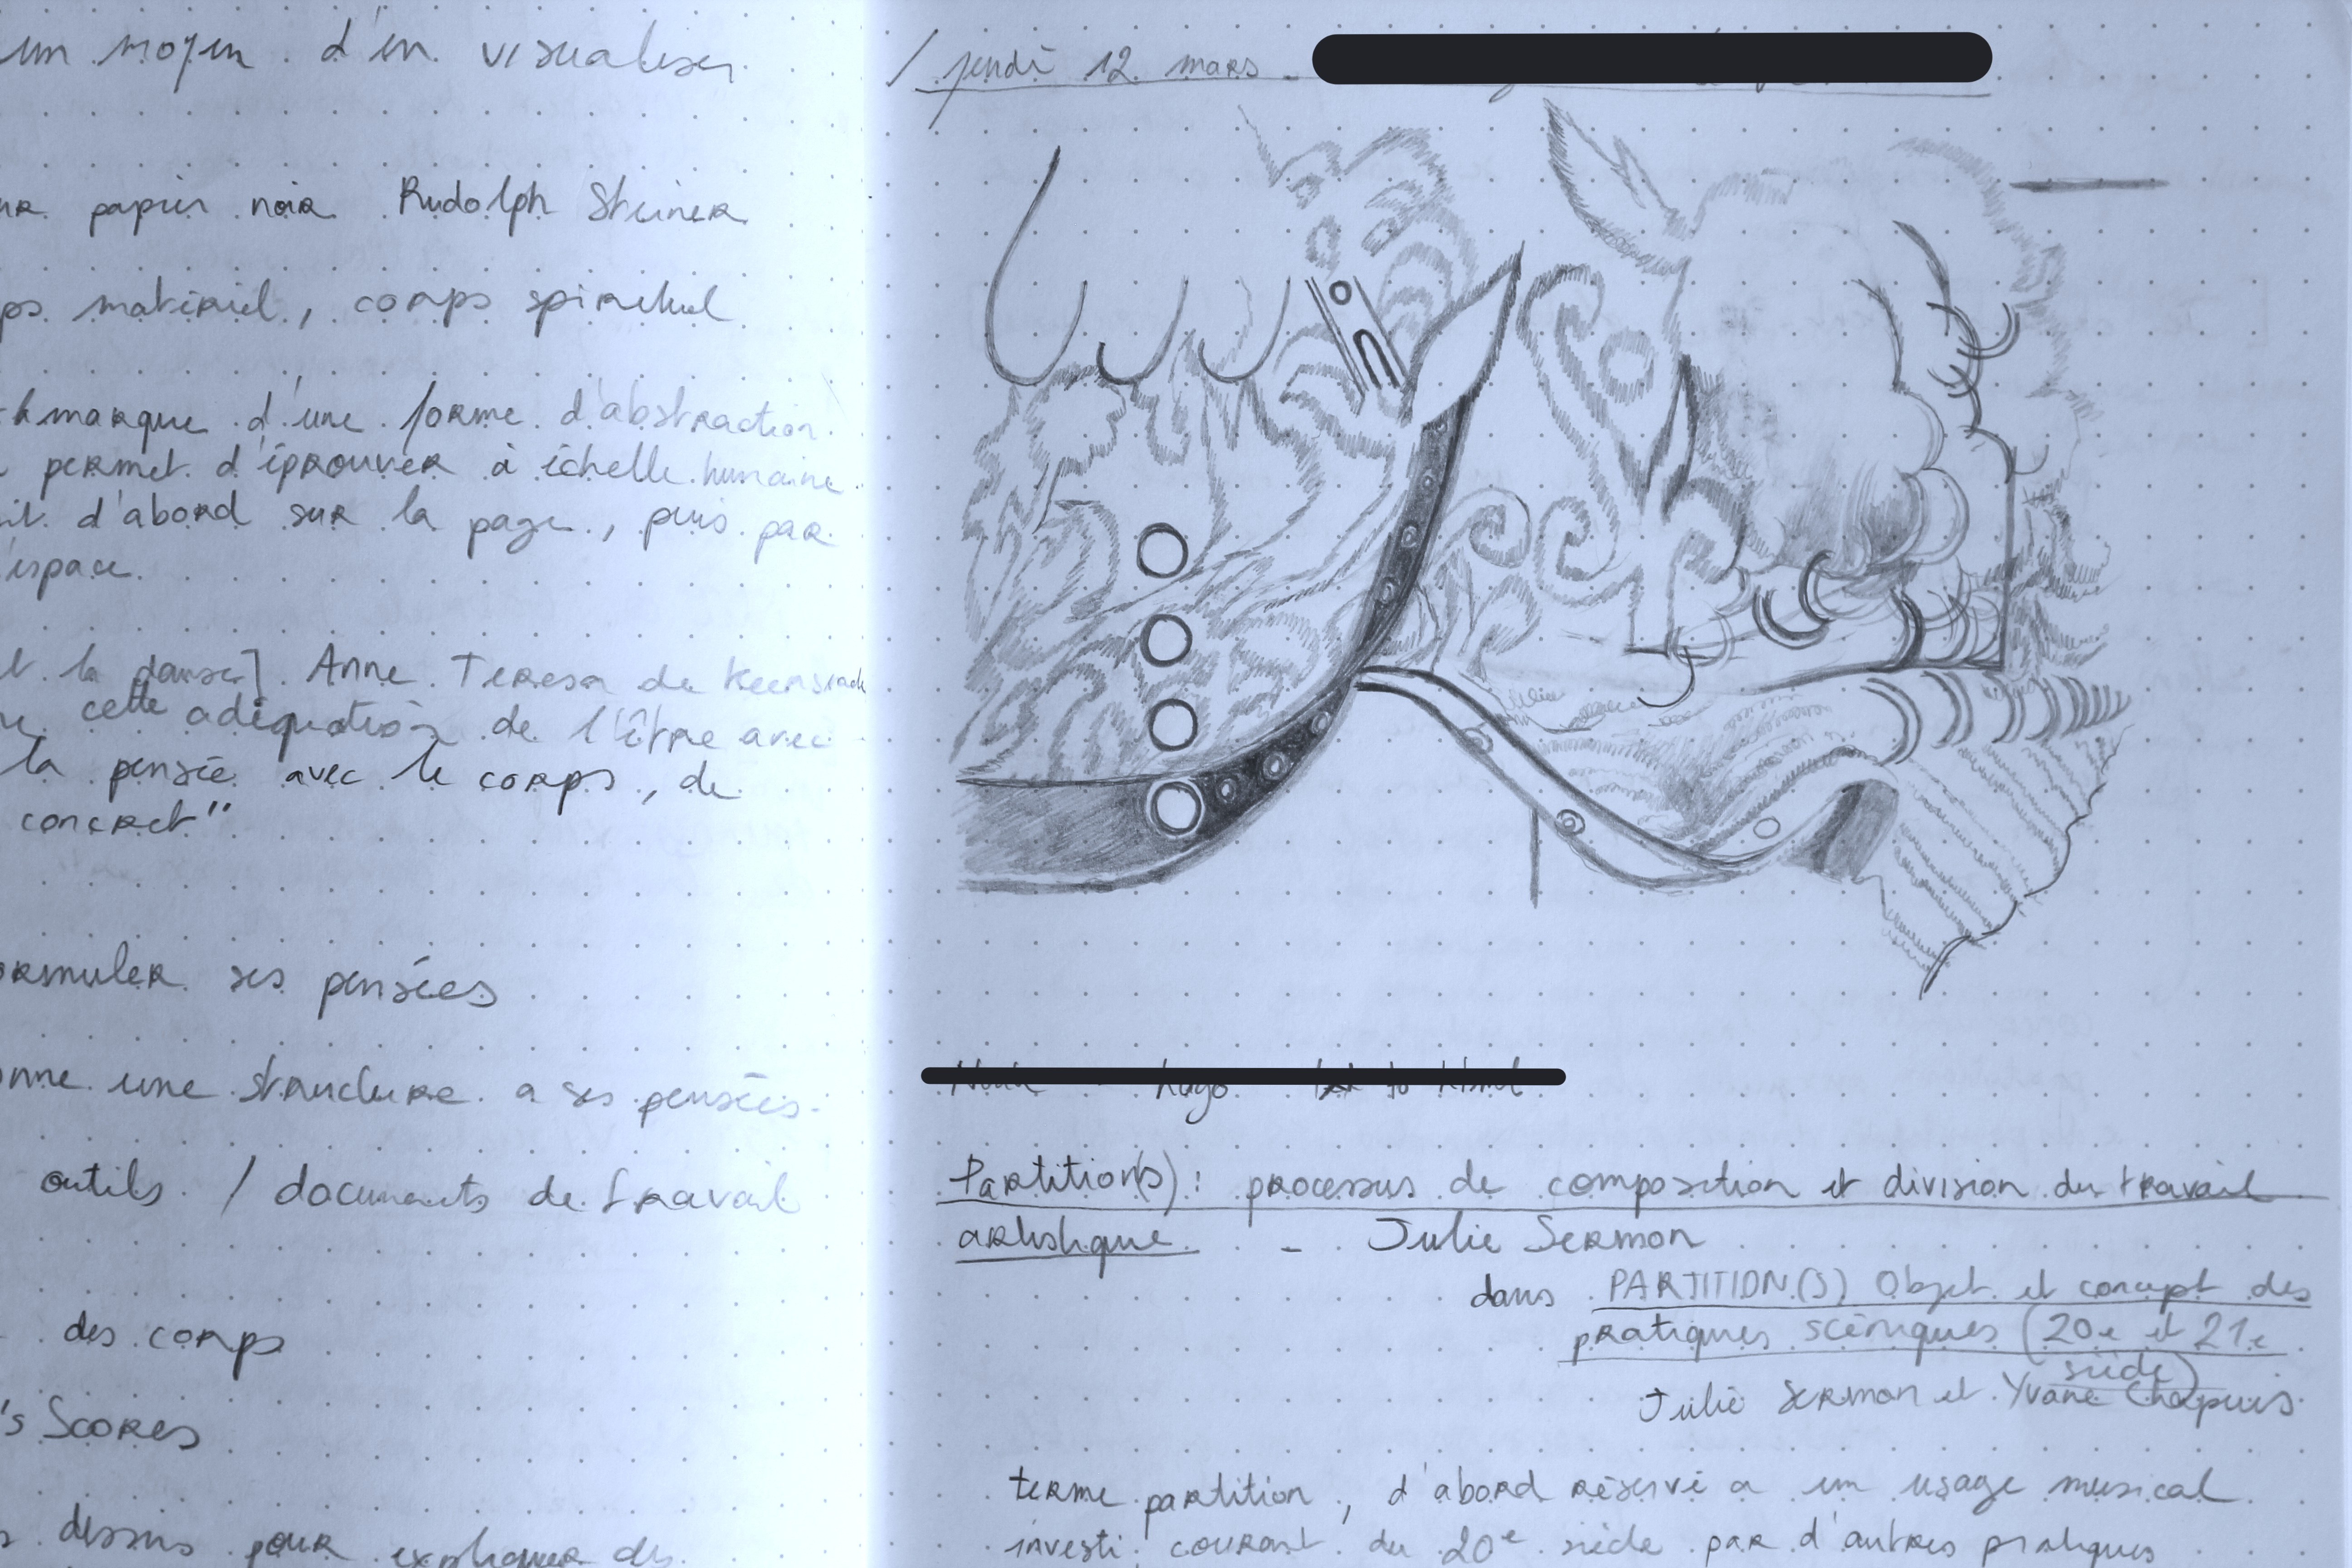 un moyen d'en visualiser
papier noir Rudolph Steiner
matériel, corps spirituel
d'une forme d'abstraction
permet d'éprouver à échelle humaine
d'abord sur la page, puis par
espace.
la danse] Anne Teresa de Keersmaek
cette adéquation de l'être avec
la pensée avec le corps, de
concret"
ses pensées
une structure a ses pensées.
outils / documents de travail
des corps
's Scores
dessins pour expliquer des
/ jeudi 12 mars -
hugo
Partition(s) : processus de composition et division du travail
artistique - Julie Sermon
dans PARTITION(S) Objet et concept des
pratiques scéniques (20e et 21e
siècle)
Julie Sermon et Yvane Chapuis
terme partition, d'abord réservé a un usage musical
investi courant du 20e siècle par d'autres pratiques